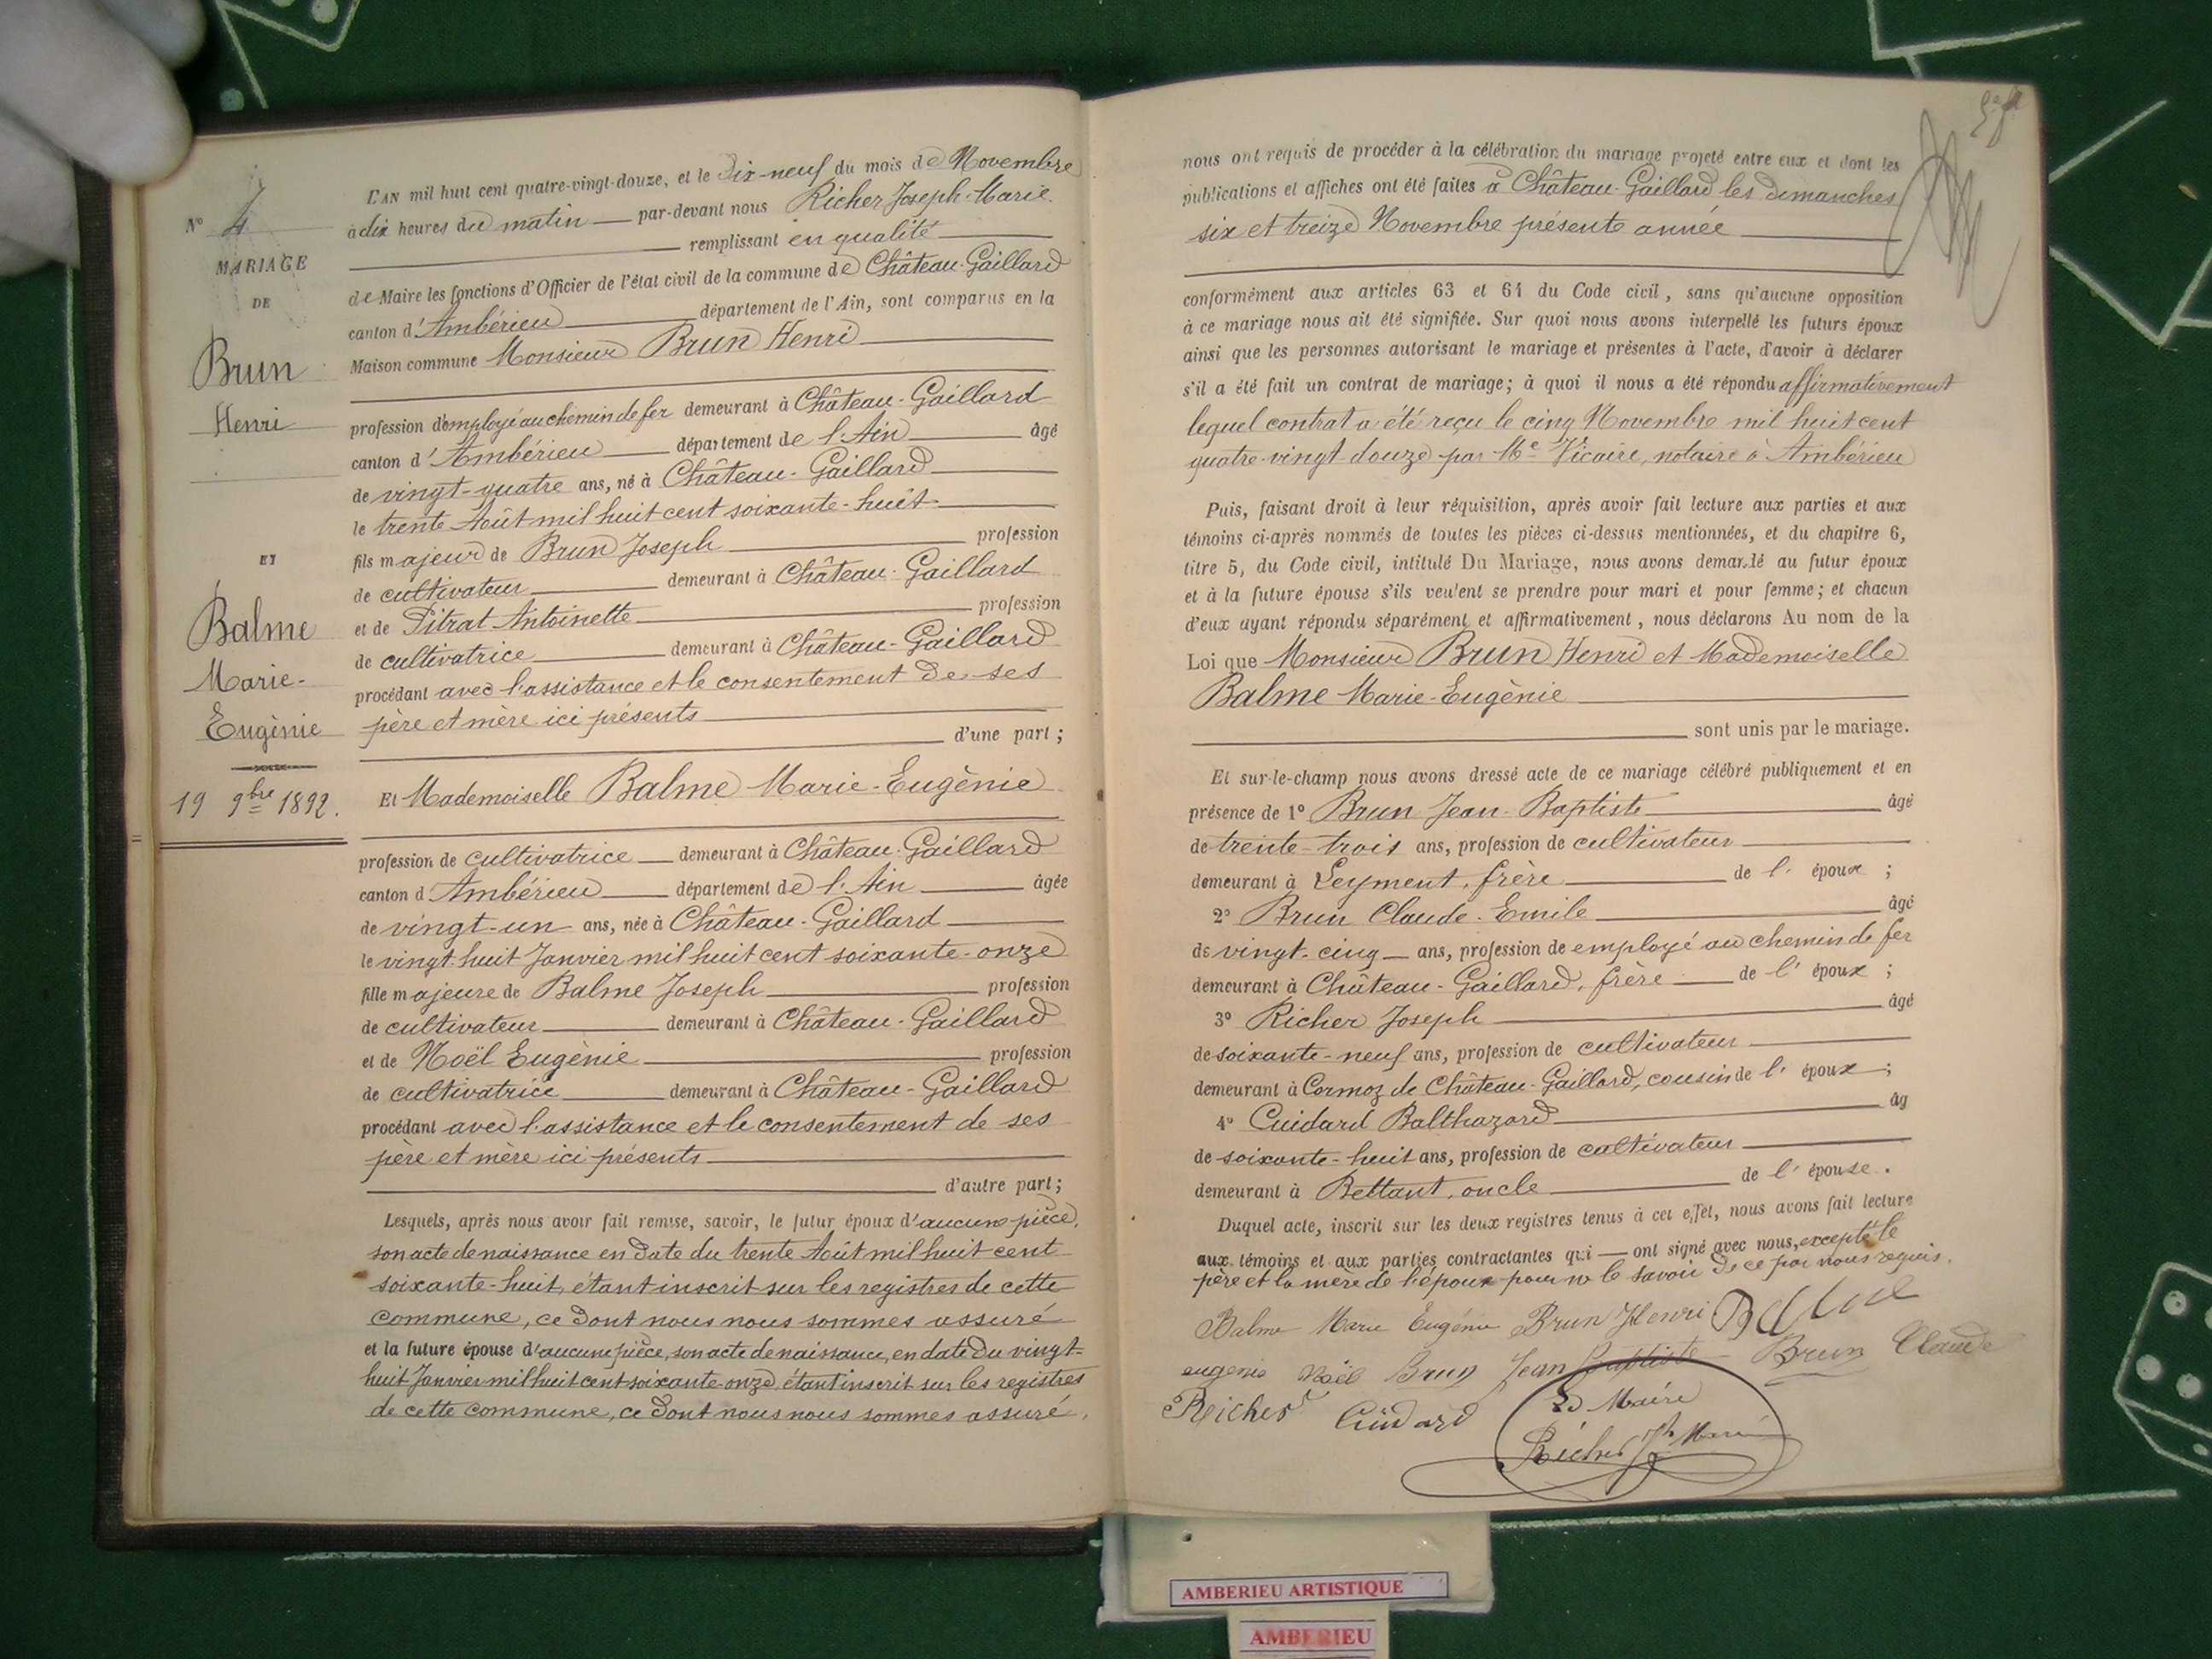 N° 4
MARIAGE
DE
Brun
Henri
ET
Balme
Marie-
Eugènie
19 9bre 1892.
L'AN mil huit cent quatre-vingt-douze, et le Dix-neuf du mois de Novembre
à dix heures du matin par-devant nous Richer Joseph-Marie
remplissant en qualité
de Maire les fonctions d'Officier de l'état civil de la commune de Château-Gaillard
canton d'Ambérieu département de l'Ain, sont comparus en la
Maison commune Monsieur Brun Henri
profession d'employé au chemin de fer demeurant à Château-Gaillard
canton d'Ambérieu département de l'Ain âgé
de vingt-quatre ans, né à Château-Gaillard
le trente Août mil huit cent soixante-huit
fils majeur de Brun Joseph profession
de cultivateur demeurant à Château-Gaillard
et de Pitrat Antoinette profession
de cultivatrice demeurant à Château-Gaillard
procédant avec l'assistance et le consentement de ses
père et mère ici présents
d'une part;
Et Mademoiselle Balme Marie-Eugènie
profession de cultivatrice demeurant à Château-Gaillard
canton d'Ambérieu département de l'Ain âgée
de vingt-un ans, née à Château-Gaillard
le vingt-huit Janvier mil huit cent soixante-onze
fille majeure de Balme Joseph profession
de cultivateur demeurant à Château-Gaillard
et de Noël Eugènie profession
de cultivatrice demeurant à Château-Gaillard
procédant avec l'assistance et le consentement de ses
père et mère ici présents
d'autre part;
Lesquels, après nous avoir fait remise, savoir, le futur époux d'aucune pièce,
son acte de naissance en date du trente Août mil huit cent
soixante-huit, étant inscrit sur les registres de cette
commune, ce dont nous nous sommes assuré
et la future épouse d'aucune pièce, son acte de naissance, en date du vingt-
huit Janvier mil huit cent soixante-onze, étant inscrit sur les registres
de cette commune, ce dont nous nous sommes assuré.
nous ont requis de procéder à la célébration du mariage projeté entre eux et dont les
publications et affiches ont été faites à Château-Gaillard les dimanches
six et treize Novembre présente année
conformément aux articles 63 et 64 du Code civil, sans qu'aucune opposition
à ce mariage nous ait été signifiée. Sur quoi nous avons interpellé les futurs époux
ainsi que les personnes autorisant le mariage et présentes à l'acte, d'avoir à déclarer
s'il a été fait un contrat de mariage; à quoi il nous a été répondu affirmativement
lequel contrat a été reçu le cinq Novembre mil huit cent
quatre-vingt douze par Me Vicaire, notaire à Ambérieu
Puis, faisant droit à leur réquisition, après avoir fait lecture aux parties et aux
témoins ci-après nommés de toutes les pièces ci-dessus mentionnées, et du chapitre 6,
titre 5, du Code civil, intitulé Du Mariage, nous avons demandé au futur époux
et à la future épouse s'ils veulent se prendre pour mari et pour femme; et chacun
d'eux ayant répondu séparément et affirmativement, nous déclarons Au nom de la
Loi que Monsieur Brun Henri et Mademoiselle
Balme Marie-Eugènie
sont unis par le mariage.
Et sur-le-champ nous avons dressé acte de ce mariage célébré publiquement et en
présence de 1° Brun Jean-Baptiste âgé
de trente-trois ans, profession de cultivateur
demeurant à Leyment, frère de l'époux;
2° Brun Claude-Emile âgé
de vingt-cinq ans, profession de employé au chemin de fer
demeurant à Château-Gaillard, frère de l'époux;
3° Richer Joseph âgé
de soixante-neuf ans, profession de cultivateur
demeurant à Cormoz de Château-Gaillard, cousin de l'époux;
4° Guidard Balthazard âg
de soixante-huit ans, profession de cultivateur
demeurant à Bettant, oncle de l'épouse.
Duquel acte, inscrit sur les deux registres tenus à cet effet, nous avons fait lecture
aux témoins et aux parties contractantes qui ont signé avec nous, excepté le
père et la mère de l'époux pour ne le savoir de ce par nous requis.
Balme Marie Eugénie Brun Henri Balme
eugenie Noël Brun Jean Baptiste Brun Claude
Richer Guidard Le Maire
Richer Jh Marie
AMBERIEU ARTISTIQUE
AMBERIEU